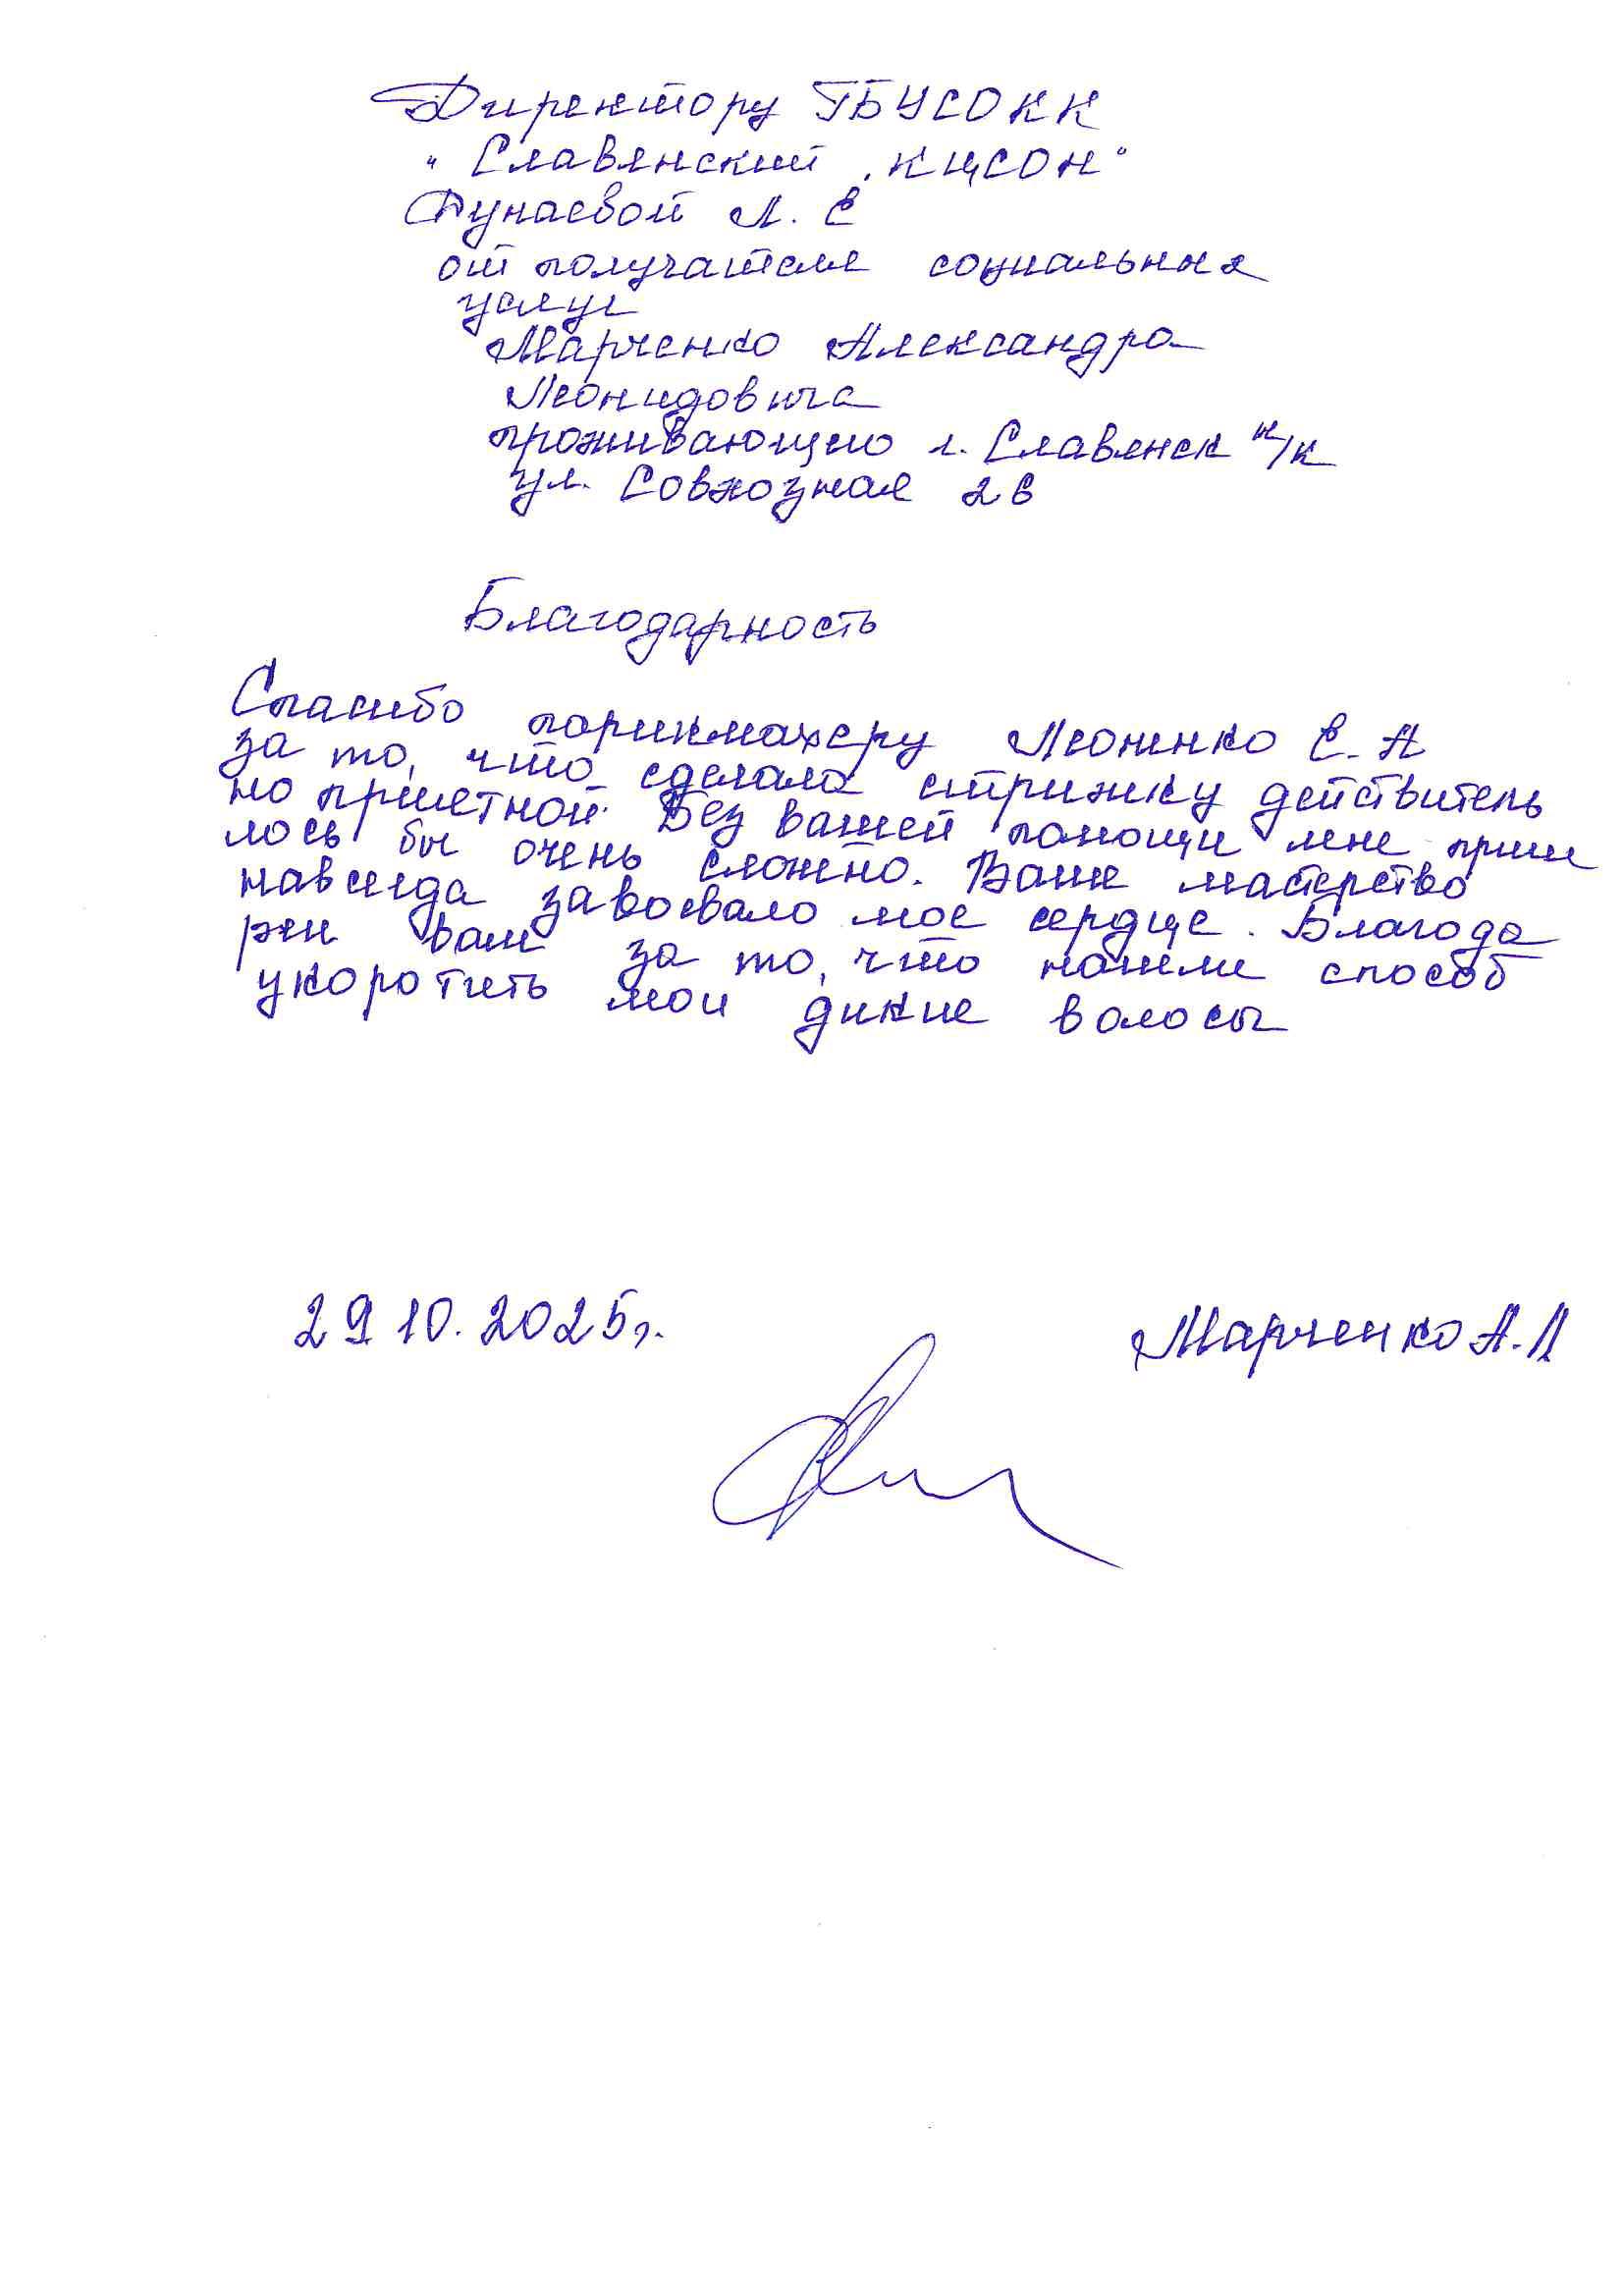 Директору ГБУСОКК
"Славянский КЦСОН"
Дунаевой Л. Е
от получателя социальных
услуг
Марченко Александра
Леонидовича
проживающего г. Славянск н/К
ул. Совхозная 26
Благодарность
Спасибо парикмахеру Леоненко Е. А
за то, что сделала стрижку действитель
но приметной. Без вашей помощи мне приш
лось бы очень сложно. Ваше мастерство
навсегда завоевало мое сердце. Благода
рен вам за то, что нашли способ
укоротить мои дикие волосы
29 10. 2025г.
Марченко А. Л